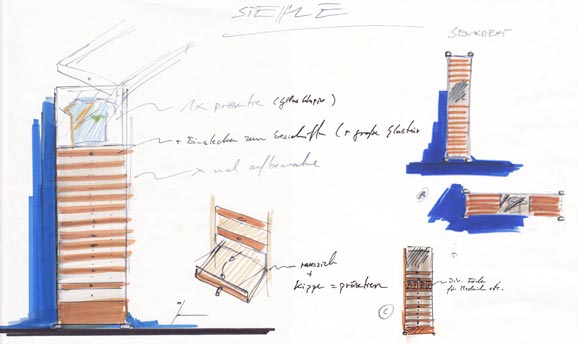 STEHLE
SENKRECHT
1x präsentier (Glasklappe)
+ Einstecken zum Beschriften (+ große Glastür
x mal aufbewahren
B
rausziehen
+
Kippe = präsentieren
C
Div. Fächer
für Medien etc.